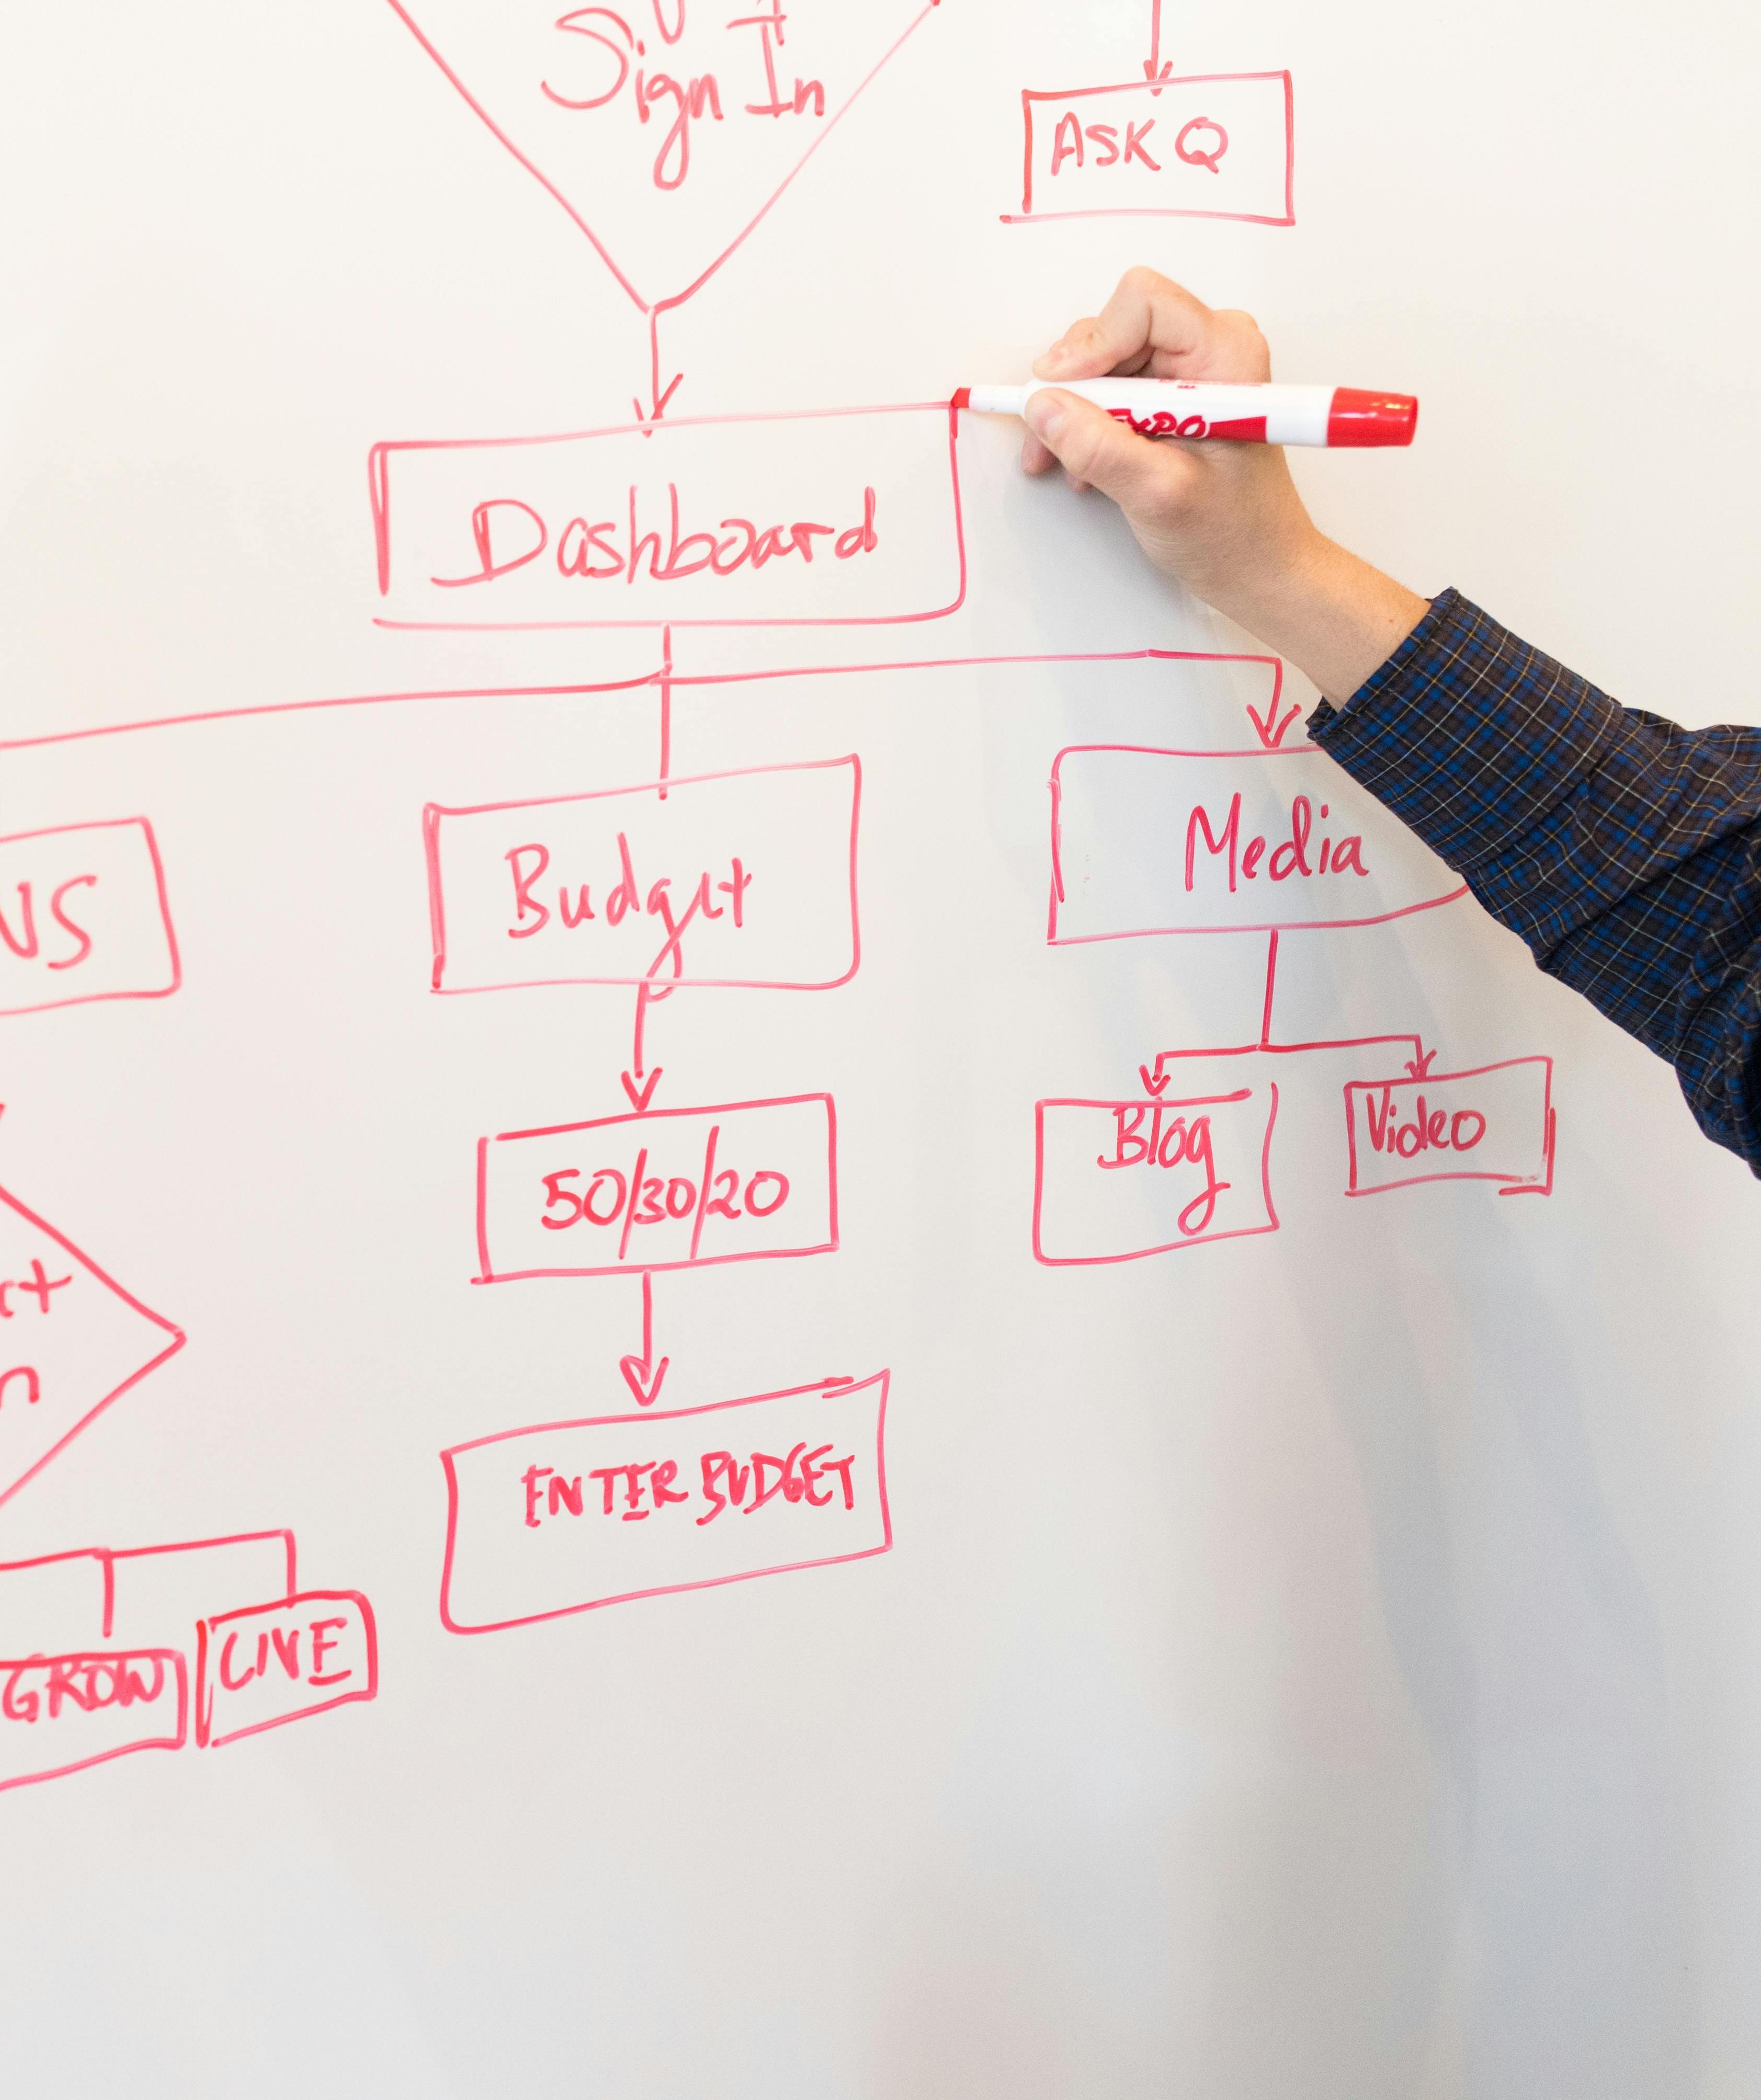 Sign In
ASK Q
EXPO
Dashboard
Budget
Media
50/30/20
Blog
Video
ENTER BUDGET
GROW
LIVE